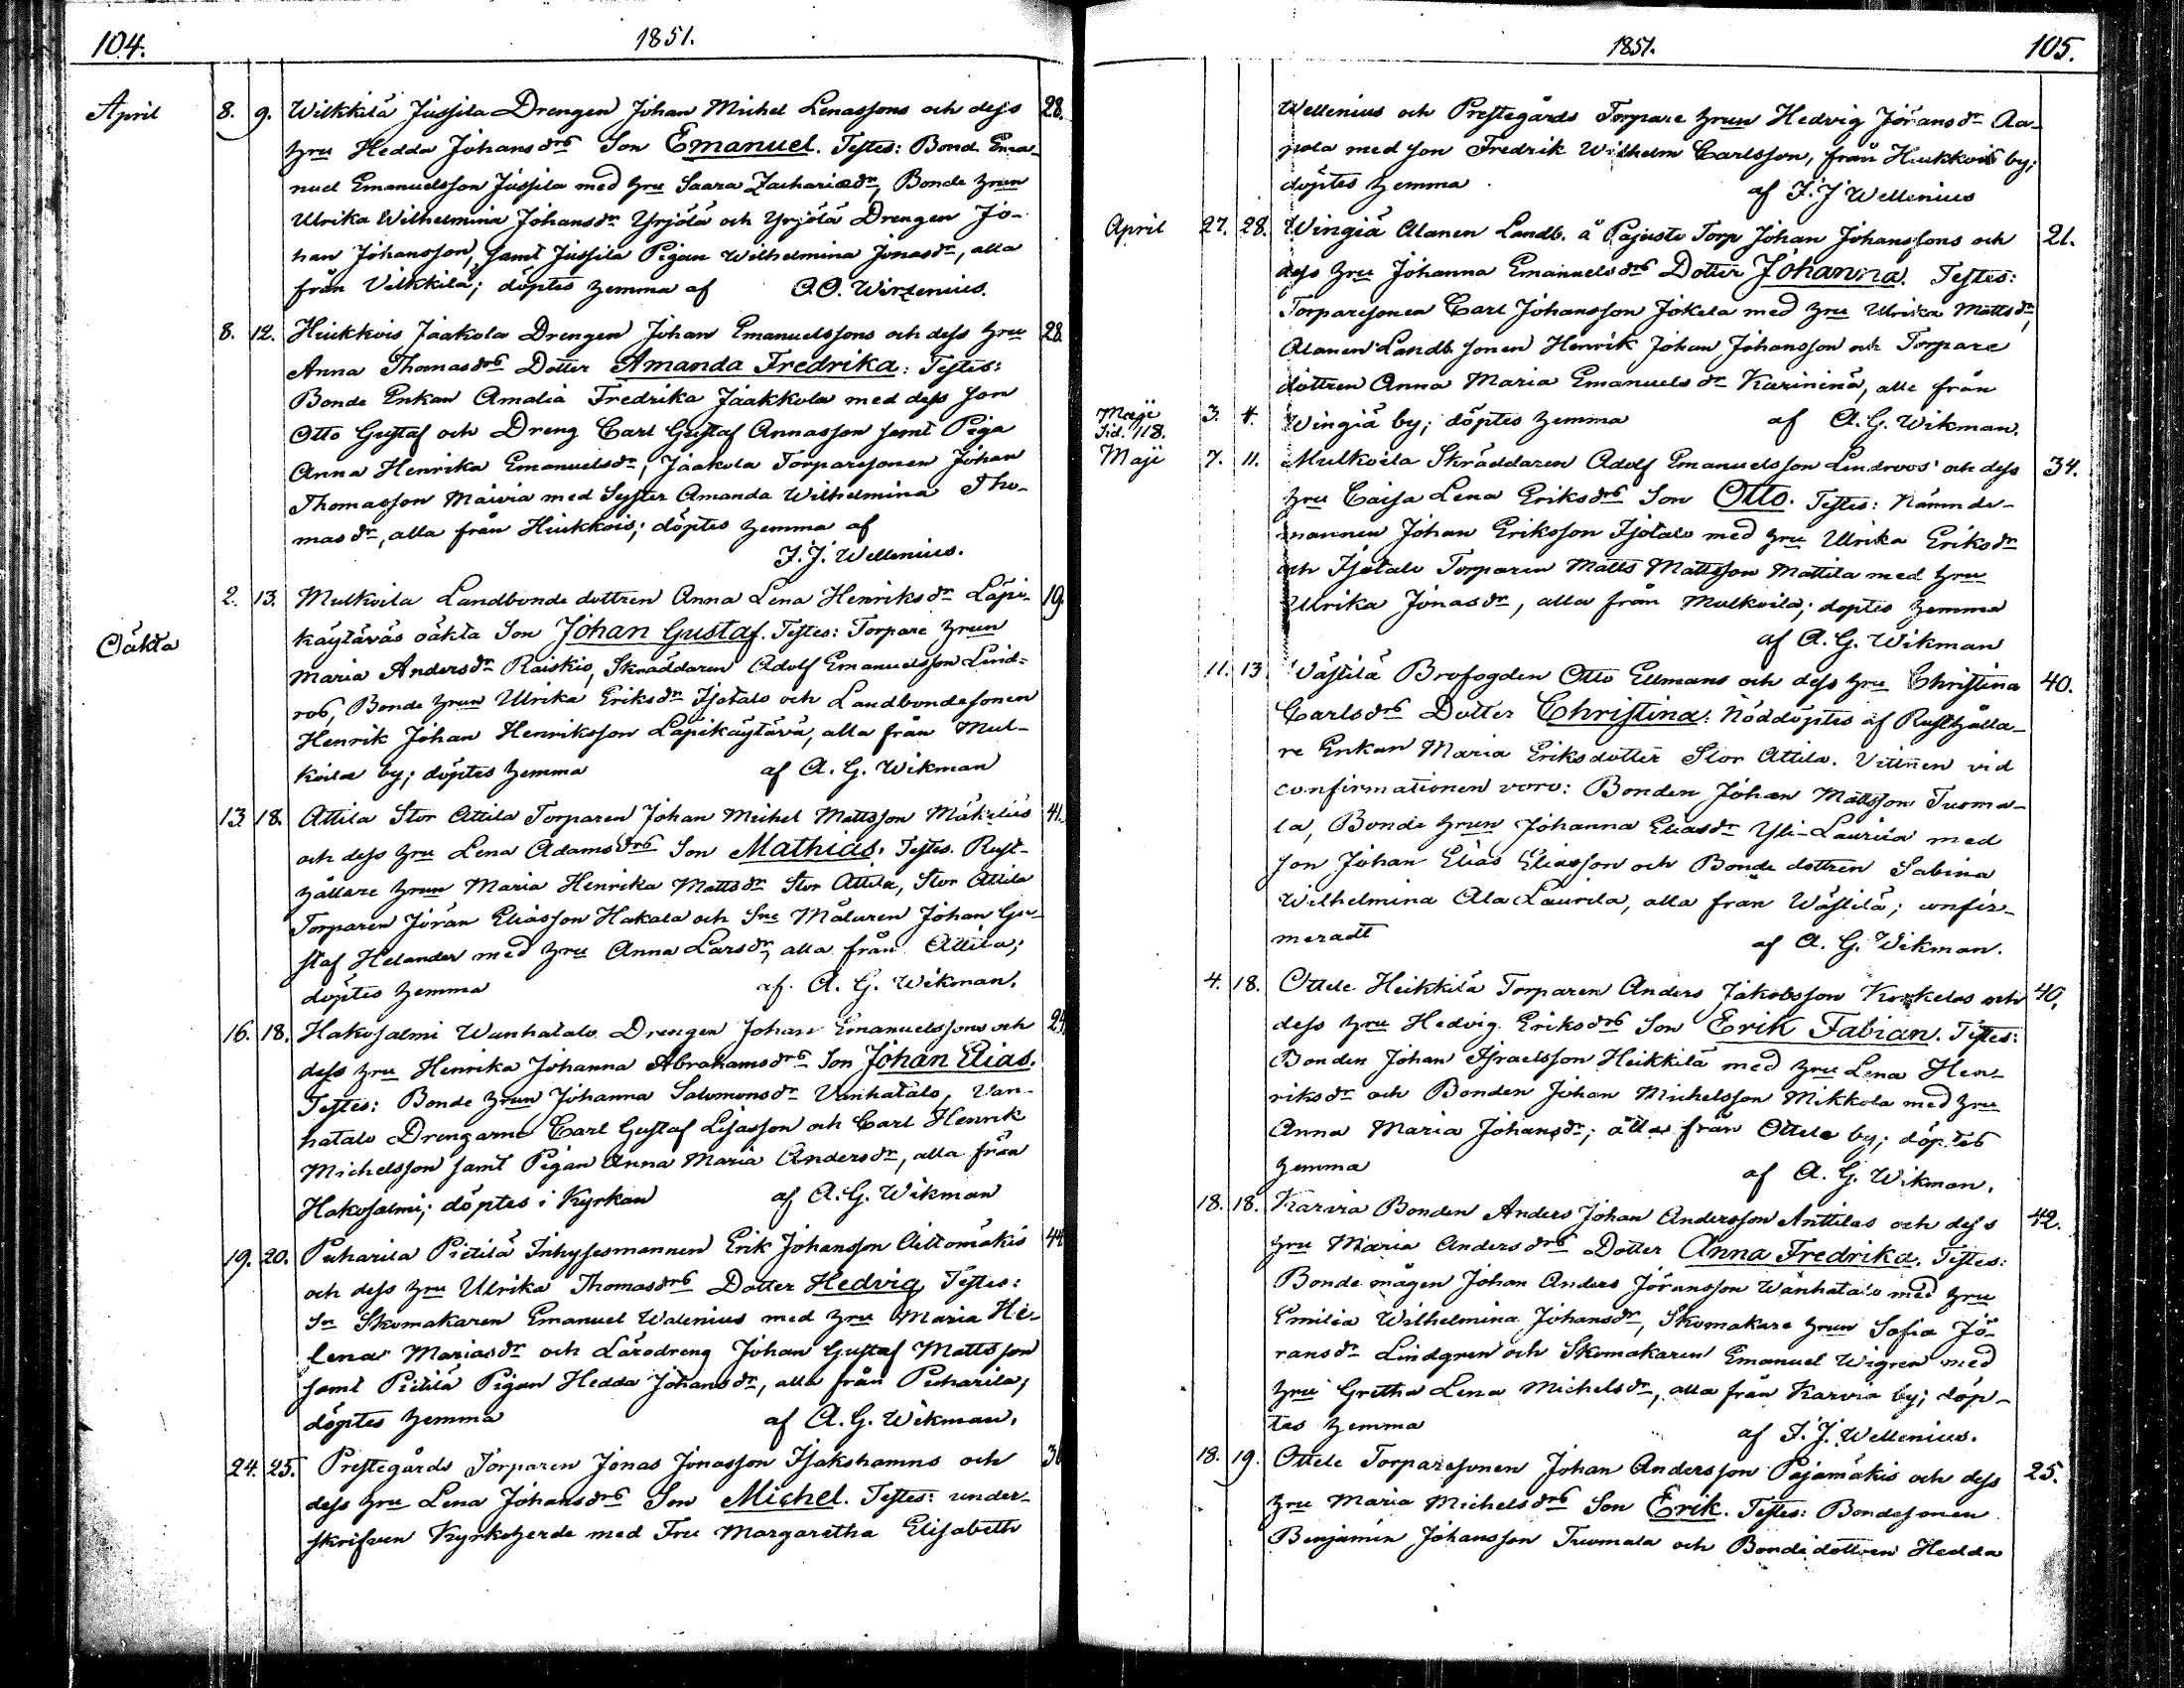 104.
1851.
April 8. 9. Wilkkilä Jussila Drengen Johan Michel Lenassons och dess 28.
hru Hedda Johansdrs Son Emanuel. Testes: Bond. Ema-
nuel Emanuelsson Jussila med hru Saara Zachariædr, Bonde hrun
Ulrika Wilhelmina Johansdr Yrjölä och Yrjölä Drengen Jo-
han Johansson, samt Jussila Pigan Wilhelmina Jonasdr, alla
från Vilkkilä; döptes hemma af O.O. Wirzenius.
8. 12. Hiukkois Jaakola Drengen Johan Emanuelssons och dess hru 28.
Anna Thomasdrs Dotter Amanda Fredrika: Testes:
Bonde Enkan Amalia Fredrika Jaakkola med dess son
Otto Gustaf och Dreng Carl Gustaf Annasson samt Piga
Anna Henrika Emanuelsdr, Jaakola Torparesonen Johan
Thomasson Maivia med Syster Amanda Wilhelmina Tho-
masdr, alla från Hiukkois; döptes hemma af
F.J. Wellenius.
2. 13. Mulkoila Landbonde dottren Anna Lena Henriksdr Läpi- 19.
Oäkta
käytäväs oäkta Son Johan Gustaf. Testes: Torpare hrun
Maria Andersdr Raiskio, Skräddaren Adolf Emanuelsson Lind-
ros, Bonde hrun Ulrika Eriksdr Isotalo och Landbondesonen
Henrik Johan Henriksson Läpikäytävä, alla från Mul-
koila by; döptes hemma af A.G. Wikman
13. 18. Attila Stor Attila Torparen Johan Michel Mattsson Mäkelus 41.
och dess hru Lena Adamsdrs Son Mathias. Testes. Rust-
hållare hrun Maria Henrika Mattsdr Stor Attila, Stor Attila
Torparen Jöran Eliasson Hakala och Sne Målaren Johan Gu-
staf Helander med hru Anna Larsdr, alla från Attila;
döptes hemma af A.G. Wikman.
16. 18. Hakosalmi Wanhatalo Drengen Johan Emanuelssons och
dess hru Henrika Johanna Abrahamsdrs Son Johan Elias.
Testes: Bonde hrun Johanna Salomonsdr Vanhatalo, Van-
hatalo Drengarne Carl Gustaf Lisasson och Carl Henrik
Michelsson samt Pigan Anna Maria Andersdr, alla från
Hakosalmi; döptes i Kyrkan af A.G. Wikman
19. 20. Puharila Pietilä Inhysesmannen Erik Johansson Aittomäkis 44
och dess hru Ulrika Thomasdrs Dotter Hedvig Testes:
Sn Skomakaren Emanuel Walenius med hru Maria He-
lena Mariasdr och Lärodreng Johan Gustaf Mattsson
samt Pietilä Pigan Hedda Johansdr, alla från Puharila;
döptes hemma af A.G. Wikman.
24. 25. Prestegårds Torparen Jonas Jonasson Isakshamns och
dess hru Lena Johansdrs Son Michel. Testes: under-
skrifven Kyrkoherde med Fru Margaretha Elisabeth
1851.
105.
Wellenius och Prestegårds Torpare hrun Hedvig Jöransdr Aa-
pola med son Fredrik Wilhelm Carlsson, från Hiukkois by;
döptes hemma af F.J. Wellenius
April 27. 28. Wingiä Alanen Landb. å Pajusto Torp Johan Johanssons och 21.
dess hru Johanna Emanuelsdrs Dotter Johanna. Testes:
Torparesonen Carl Johansson Jokela med hru Ulrika Mattsdr,
Alanen Landb. sonen Henrik Johan Johansson och Torpare
dottren Anna Maria Emanuelsdr Karinina, alla från
Maji 3. 4. Wingiä by; döptes hemma af A.G. Wikman.
Sid. 118.
Maji 7. 11. Mulkoila Skräddaren Adolf Emanuelsson Lindroos' och dess 34.
hru Caisa Lena Eriksdrs Son Otto. Testes: Nämnde-
mannen Johan Eriksson Isotalo med hru Ulrika Eriksdr
och Isotalo Torparen Matts Mattsson Mattila med hru
Ulrika Jonasdr, alla från Mulkoila; döptes hemma
af A.G. Wikman
11. 13 Wästilä Brofogden Otto Ellmans och dess hru Christina 40.
Carlsdrs Dotter Christina: Nöddöptes af Rusthålla-
re Enkan Maria Eriksdotter Stor Attila. Vittnen vid
confirmationen voro: Bonden Johan Mattsson Tuoma-
la, Bonde hrun Johanna Eliasdr Yli-Laurila med
son Johan Elias Eliasson och Bonde dottren Sabina
Wilhelmina Ala Laurila, alla från Wästilä; confir-
meradt af A.G. Wikman.
4. 18. Ottele Heikkilä Torparen Anders Jakobsson Korkelas och 40.
dess hru Hedvig Eriksdrs Son Erik Fabian. Testes:
Bonden Johan Israelsson Heikkilä med hru Lena Hen-
riksdr och Bonden Johan Michelsson Mikkola med hru
Anna Maria Johansdr; alla från Ottele by; döptes
hemma af A.G. Wikman.
18. 18. Karvia Bonden Anders Johan Andersson Anttilas och dess 42.
hru Maria Andersdrs Dotter Anna Fredrika. Testes:
Bonde mågen Johan Anders Jöransson Wanhatalo med hru
Emilia Wilhelmina Johansdr, Skomakare hrun Sofia Jö-
ransdr Lindgren och Skomakaren Emanuel Wigren med
hru Gretha Lena Michelsdr, alla från Karvia by; döp-
tes hemma af F.J. Wellenius.
18. 19. Ottele Torparesonen Johan Andersson Pajamäkis och dess 25.
hru Maria Michelsdrs Son Erik. Testes: Bondesonen
Benjamin Johansson Tuomala och Bonde dottren Hedda